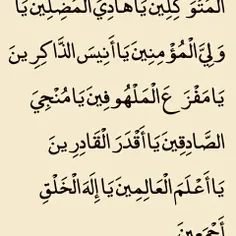 الْمُتَوَكِّلِينَ يَا هَادِيَ الْمُضِلِّينَ يَا
وَلِيَّ الْمُؤْمِنِينَ يَا أَنِيسَ الذَّاكِرِينَ
يَا مَفْزَعَ الْمَلْهُوفِينَ يَا مُنْجِيَ
الصَّادِقِينَ يَا أَقْدَرَ الْقَادِرِينَ
يَا أَعْلَمَ الْعَالِمِينَ يَا إِلَهَ الْخَلْقِ
أَجْمَعِينَ